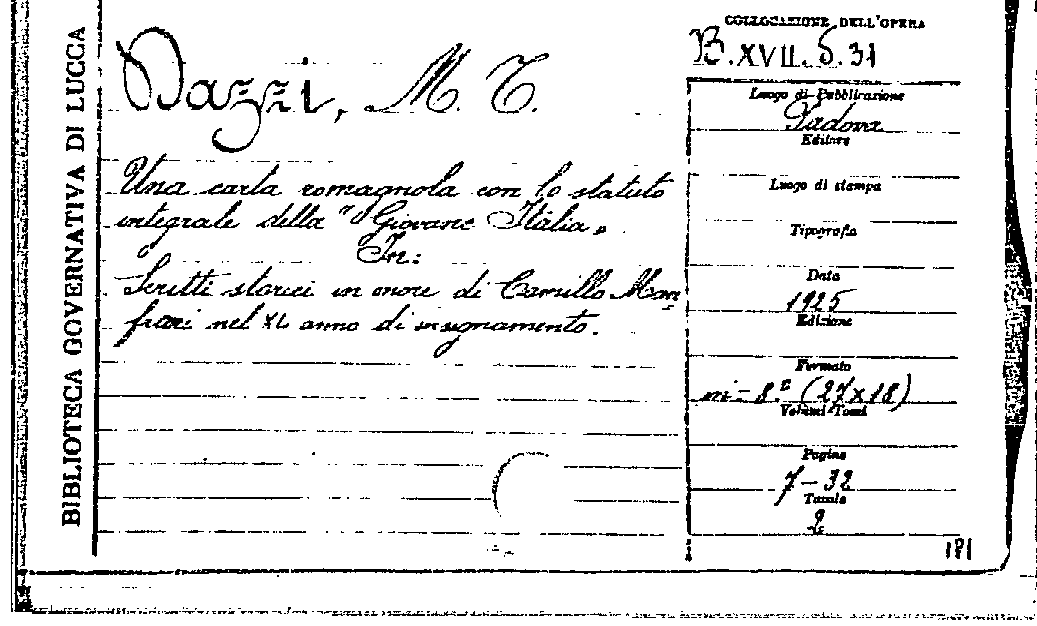 BIBLIOTECA GOVERNATIVA DI LUCCA
Dazzi, M. T.
Una carta romagnola con lo statuto
integrale della "Giovane Italia„
In:
Scritti storici in onore di Camillo Man-
froni nel XL anno di insegnamento.
COLLOCAZIONE DELL'OPERA
B.XVII.5.31
Luogo di Pubblicazione
Padova
Editore
Luogo di stampa
Tipografia
Data
1925
Edizione
Formato
in-8.º (27x18)
Volumi-Tomi
Pagine
7-32
Tavole
2
181